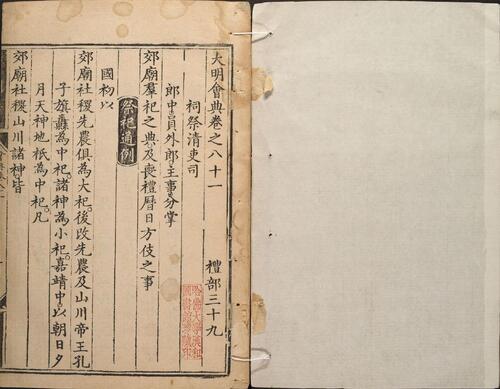 大明會典卷之八十一
禮部三十九
祠祭清吏司
郎中員外郎主事分掌
郊廟羣祀之典及喪禮曆日方伎之事
祭祀通例
國初以
郊廟社稷先農俱為大祀後改先農及山川帝王孔
子旗纛為中祀諸神為小祀嘉靖中以朝日夕
月天神地祇為中祀凡
郊廟社稷山川諸神皆